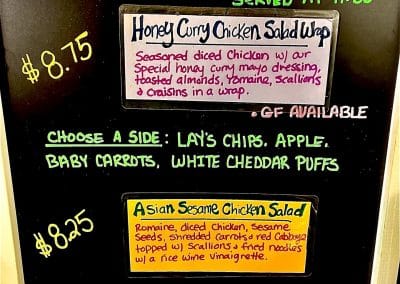 SERVED AT 11:00
$8.75
Honey Curry Chicken Salad Wrap
Seasoned diced Chicken w/ our
Special honey curry mayo dressing,
toasted almonds, romaine, scallions
& craisins in a wrap.
• GF AVAILABLE
CHOOSE A SIDE: LAY'S CHIPS. APPLE.
BABY CARROTS, WHITE CHEDDAR PUFFS
$8.25
Asian Sesame Chicken Salad
Romaine, diced chicken, sesame
Seeds, shredded carrots & red Cabbage
topped w/ Scallions & fried noodles
w/ a rice wine vinaigrette.